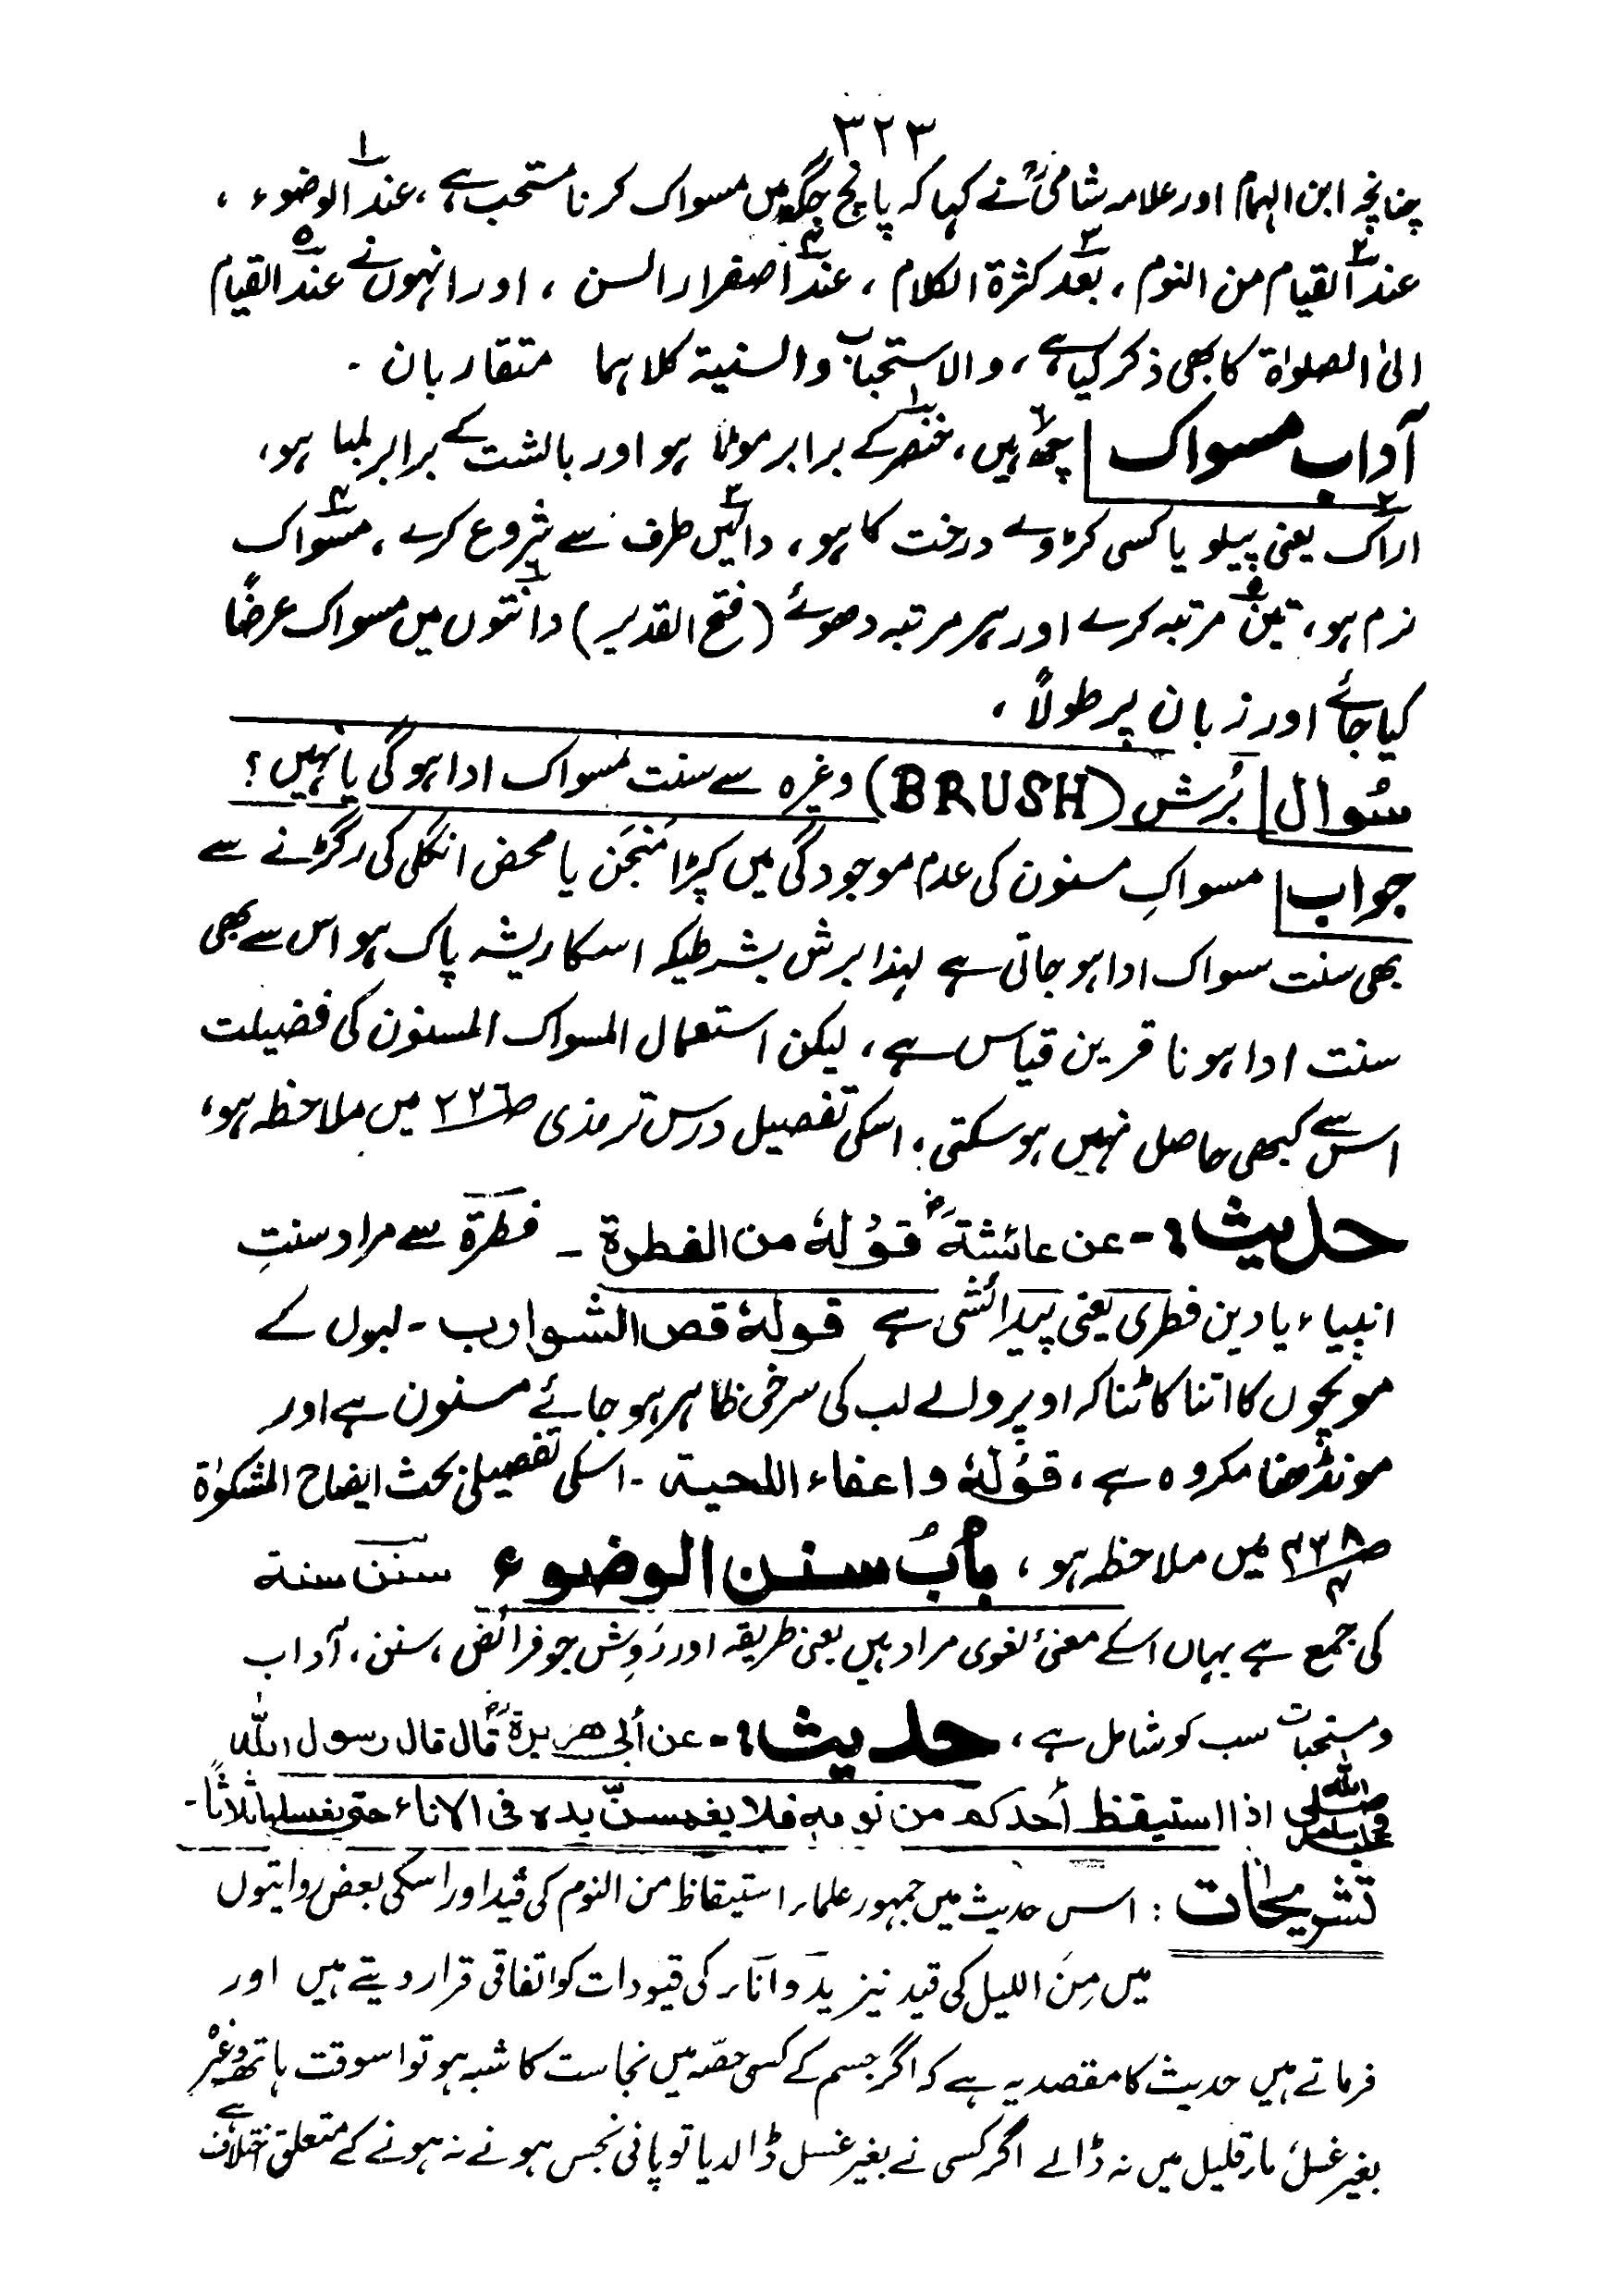 ۳۲۳
چنانچہ ابن الہمام اور علامہ شامیؒ نے کہا کہ پانچ جگہ میں مسواک کرنا مستحب ہے ، عند۱ الوضوء ،
عند۲ القیام من النوم ، بعد۳ کثرۃ الکلام ، عند۴ اصفرار السن ، اور انہوں نے عند۵ القیام
الی الصلوٰۃ کا بھی ذکر کیا ہے ، والاستحباب والسنیۃ کلاہما متقاربان ۔
آداب مسواک چھ ہیں ، ۱ خنصر کے برابر موٹا ہو اور بالشت کے برابر لمبا ہو ،
۲ اراک یعنی پیلو یا کسی کڑوے درخت کا ہو ، ۳ دائیں طرف سے شروع کرے ، ۴ مسواک
نرم ہو ، ۵ تین مرتبہ کرے اور ہر مرتبہ دھوئے (فتح القدیر) ۶ دانتوں میں مسواک عرضًا
کیا جائے اور زبان پر طولًا ،
سُوال بُرش (BRUSH) وغیرہ سے سنت مسواک ادا ہوگی یا نہیں ؟
جواب مسواکِ مسنون کی عدم موجودگی میں کپڑا مَنْجَن یا محض انگلی کی رگڑنے سے
بھی سنت مسواک ادا ہوجاتی ہے لہذا برش بشرطیکہ اسکا ریشہ پاک ہو اس سے بھی
سنت ادا ہونا قرین قیاس ہے ، لیکن استعمال المسواک المسنون کی فضیلت
اس سے کبھی حاصل نہیں ہوسکتی ، اسکی تفصیل درس ترمذی ص۲۲۶ میں ملاحظہ ہو ،
حدیث :- عن عائشۃؓ قولہٗ من الفطرۃ ـ فطرۃ سے مراد سنتِ
انبیاء یا دین فطری یعنی پیدائشی ہے قولہٗ قص الشوارب ۔ لبوں کے
مونچوں کا اتنا کاٹنا کہ اوپر والے لب کی سرخی ظاہر ہوجائے مسنون ہے اور
مونڈھنا مکروہ ہے ، قولہٗ واعفاء اللحیۃ ۔ اسکی تفصیلی بحث ایضاح المشکوٰۃ
میں ملاحظہ ہو ، بابُ سنن الوضوء سنن سنۃ
کی جمع ہے یہاں اسکے معنیٔ لغوی مراد ہیں یعنی طریقہ اور رَوِش جو فرائض ، سنن ، آداب
ومستحبات سب کو شامل ہے ، حدیث :- عن أبی ھریرۃؓ قال قال رسول اللہ
صلی اللہ علیہ وسلم اذا استیقظ أحدکم من نومہ فلا یغمسنّ یدہ فی الاناء حتی یغسلہا ثلاثًا ۔
تشریحات : اس حدیث میں جمہور علماء استیقاظ من النوم کی قید اور اسکی بعض روایتوں
میں مِنَ اللیل کی قید نیز ید وانآء کی قیودات کو اتفاقی قرار دیتے ہیں اور
فرماتے ہیں حدیث کا مقصد یہ ہے کہ اگر جسم کے کسی حصّہ میں نجاست کا شبہ ہو تو اسوقت ہاتھ وغیرہ
بغیر غسل ماء قلیل میں نہ ڈالے اگر کسی نے بغیر غسل ڈالدیا تو پانی نجس ہونے نہ ہونے کے متعلق اختلاف ہے